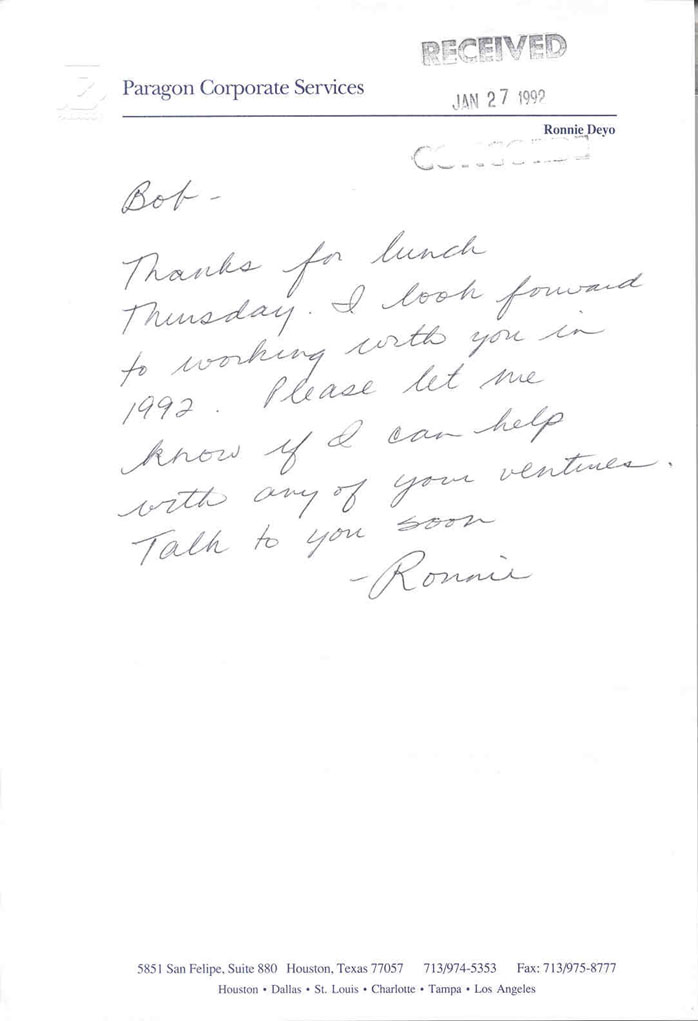 RECEIVED
Paragon Corporate Services
JAN 27 1992
Ronnie Deyo
Bob -
Thanks for lunch
Thursday. I look forward
to working with you in
1992. Please let me
know if I can help
with any of your ventures.
Talk to you soon
- Ronnie
5851 San Felipe, Suite 880 Houston, Texas 77057 713/974-5353 Fax: 713/975-8777
Houston • Dallas • St. Louis • Charlotte • Tampa • Los Angeles